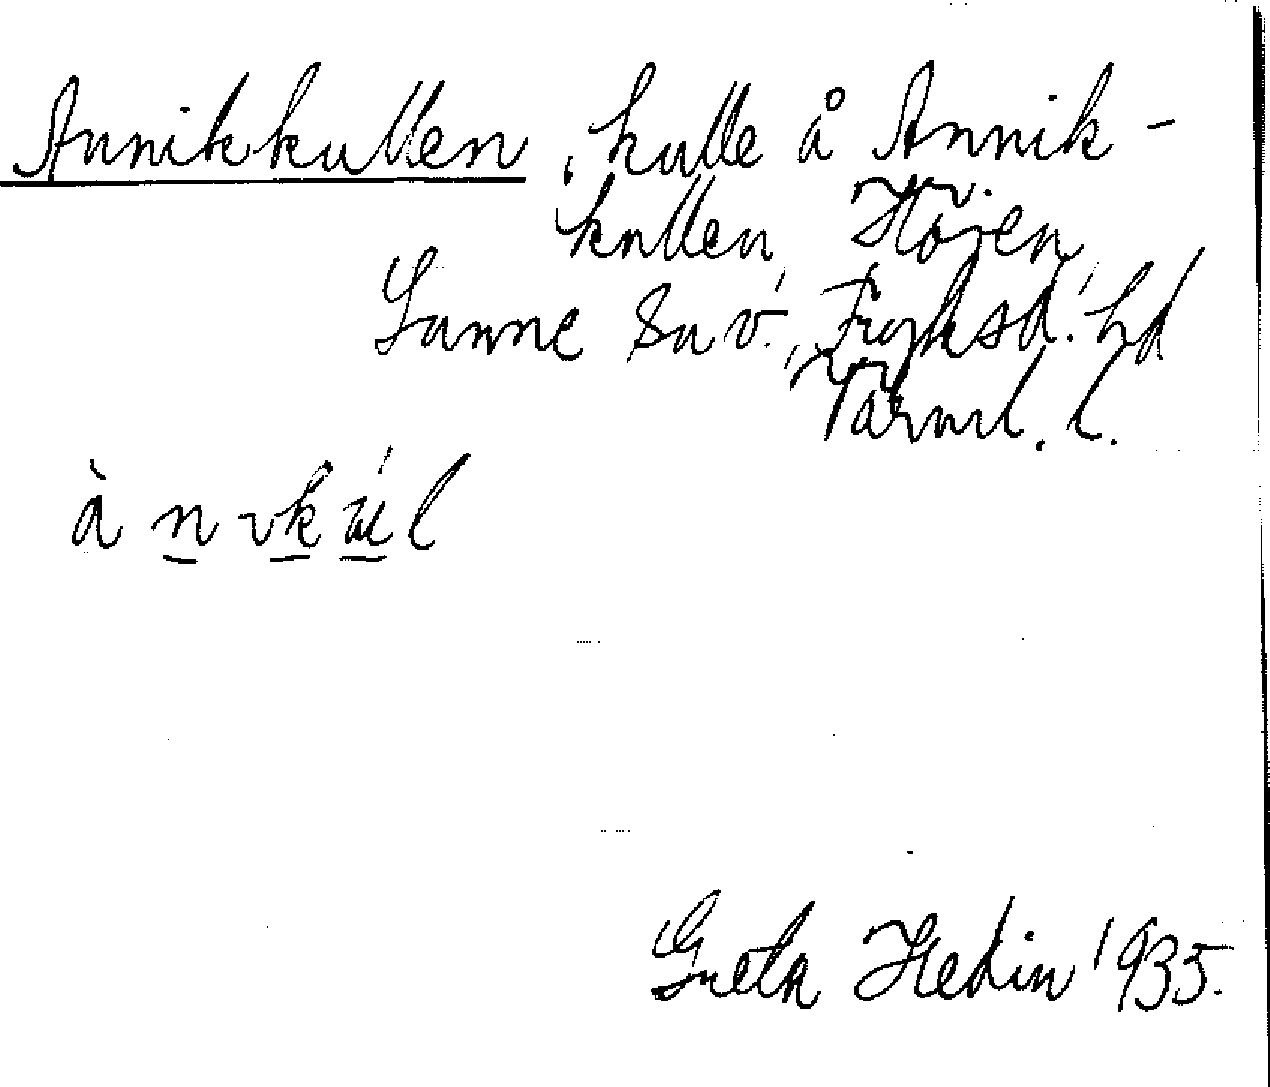 Annikkullen, kulle å Annik-
kullen, Höjen,
Sunne sn v., Fryksd. hd
Värml. l.
Greta Hedin 1935.